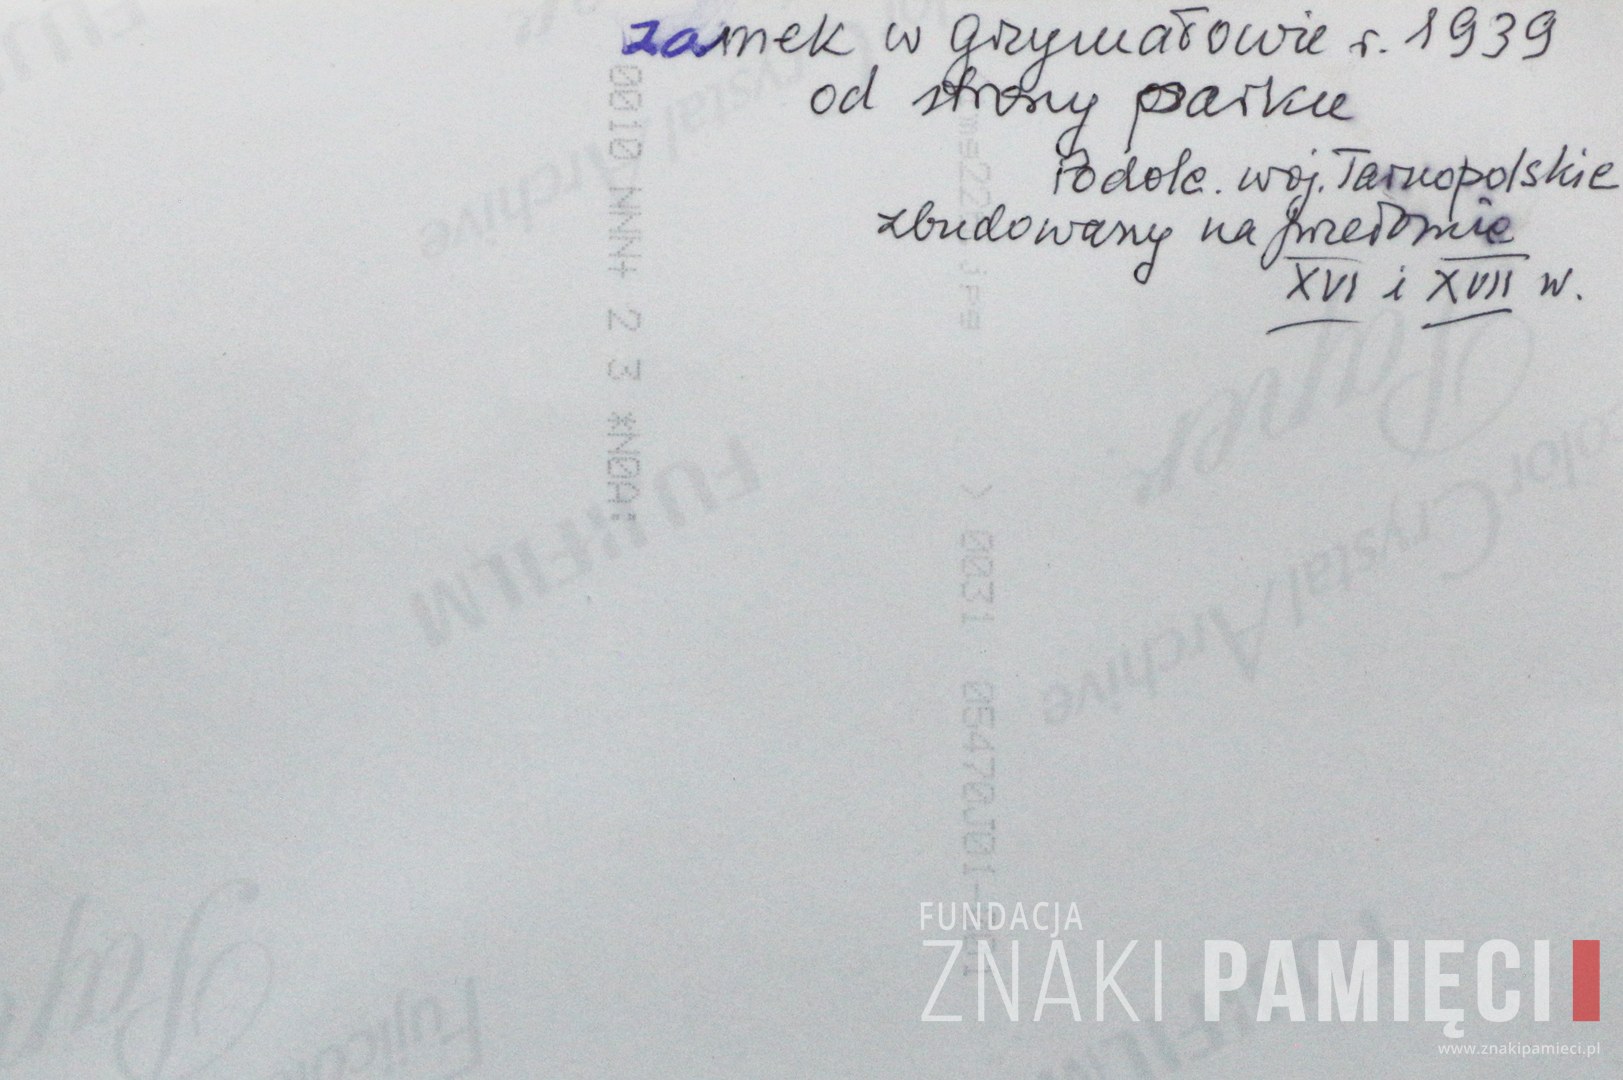 zamek w Grzymałowie r. 1939
od strony parku
Podole. woj. Tarnopolskie
zbudowany na przełomie
XVI i XVII w.
0010 NNN+ 2 3 *N0A
> 0031 05470J01-
Crystal Archive
FUJIFILM
Paper
Crystal Archive
FUNDACJA
ZNAKI PAMIĘCI
www.znakipamieci.pl